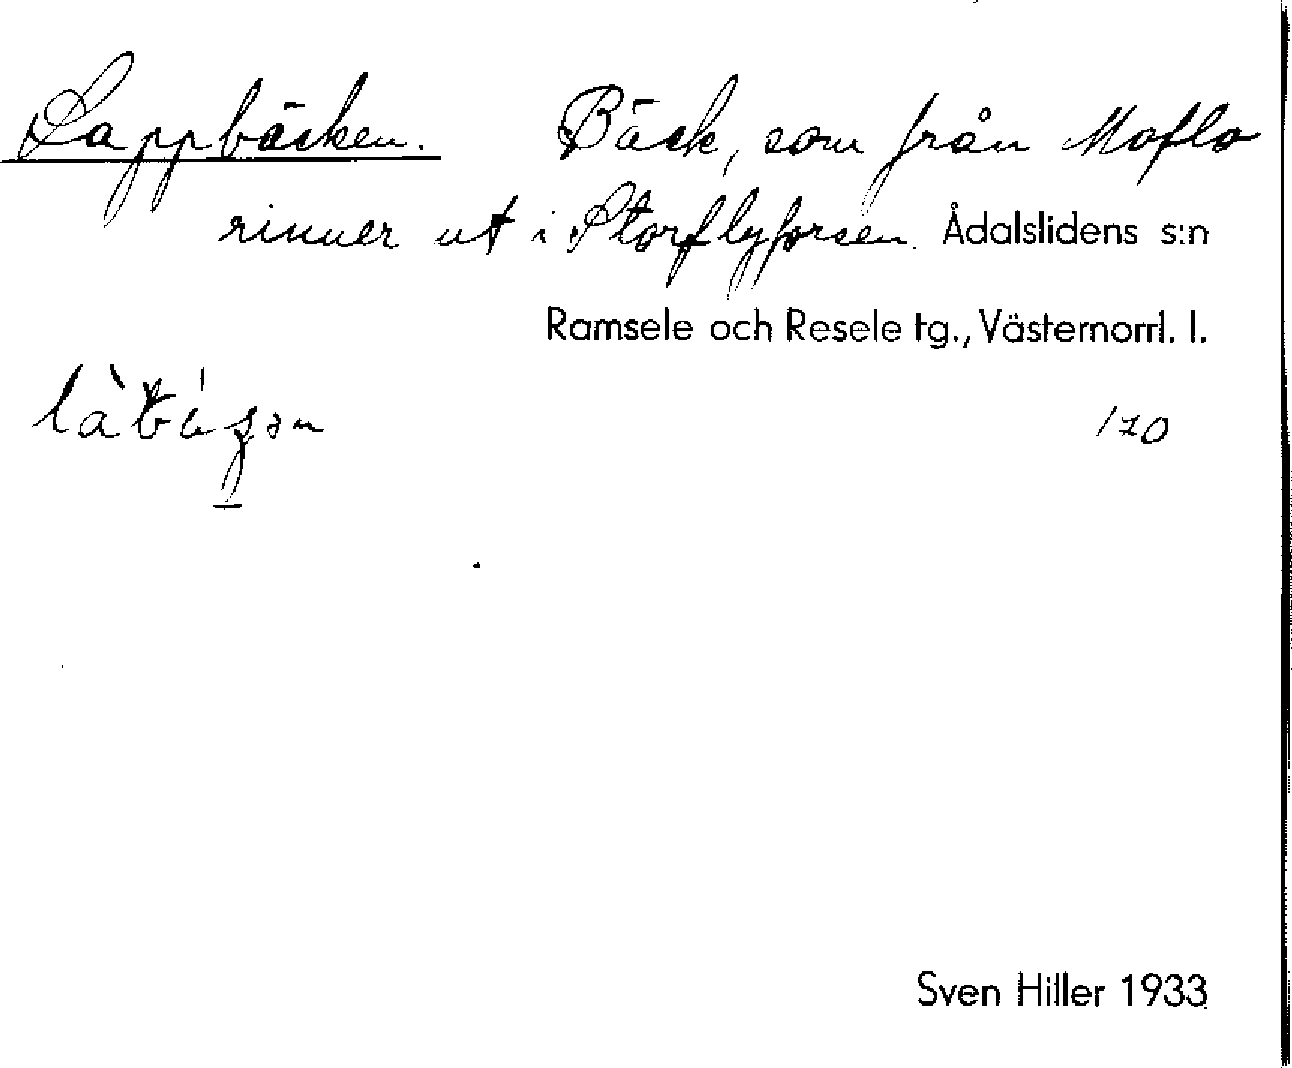 Lappbäcken. Bäck, som från Moflo
rinner ut i Storflyforsen. Ådalslidens s:n
Ramsele och Resele tg., Västernorrl. l.
170
Sven Hiller 1933